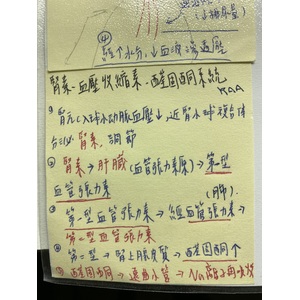 (↓排尿量)
④ 整個水分,↓血液滲透壓
腎素-血壓收縮素-醛固酮系統
RAA
① 腎元(入球小動脈血壓↓,近腎小球複合体
分泌 腎素,調節
② 腎素→肝臟(血管張力素原)→第一型
血管張力素 (肺)
③ 第一型血管張力素→經血管張力素→
第二型血管張力素
④ 第二型→腎上腺皮質→醛固酮↑
⑤ 醛固酮→遠曲小管→Na離子再吸收